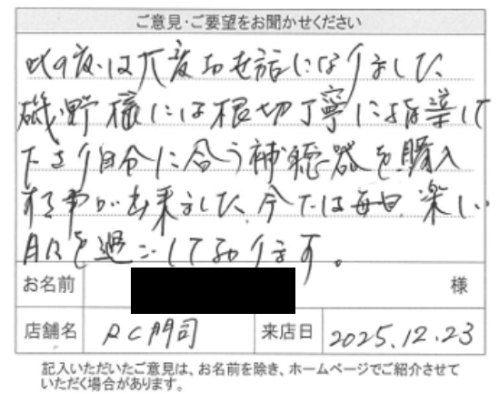 ご意見・ご要望をお聞かせください
此の度は大変お世話になりました
磯野様には親切丁寧に指導して
下さり自分に合う補聴器を購入
する事が出来ました 今では毎日楽しい
日々を過ごしております。
お名前 様
店舗名 RC門司 来店日 2025.12.23
記入いただいたご意見は、お名前を除き、ホームページでご紹介させて
いただく場合があります。